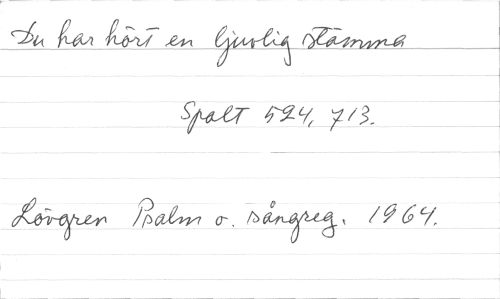 Du har hört en ljuvlig stämma
Spalt 524, 713.
Lövgren Psalm o. sångreg. 1964.